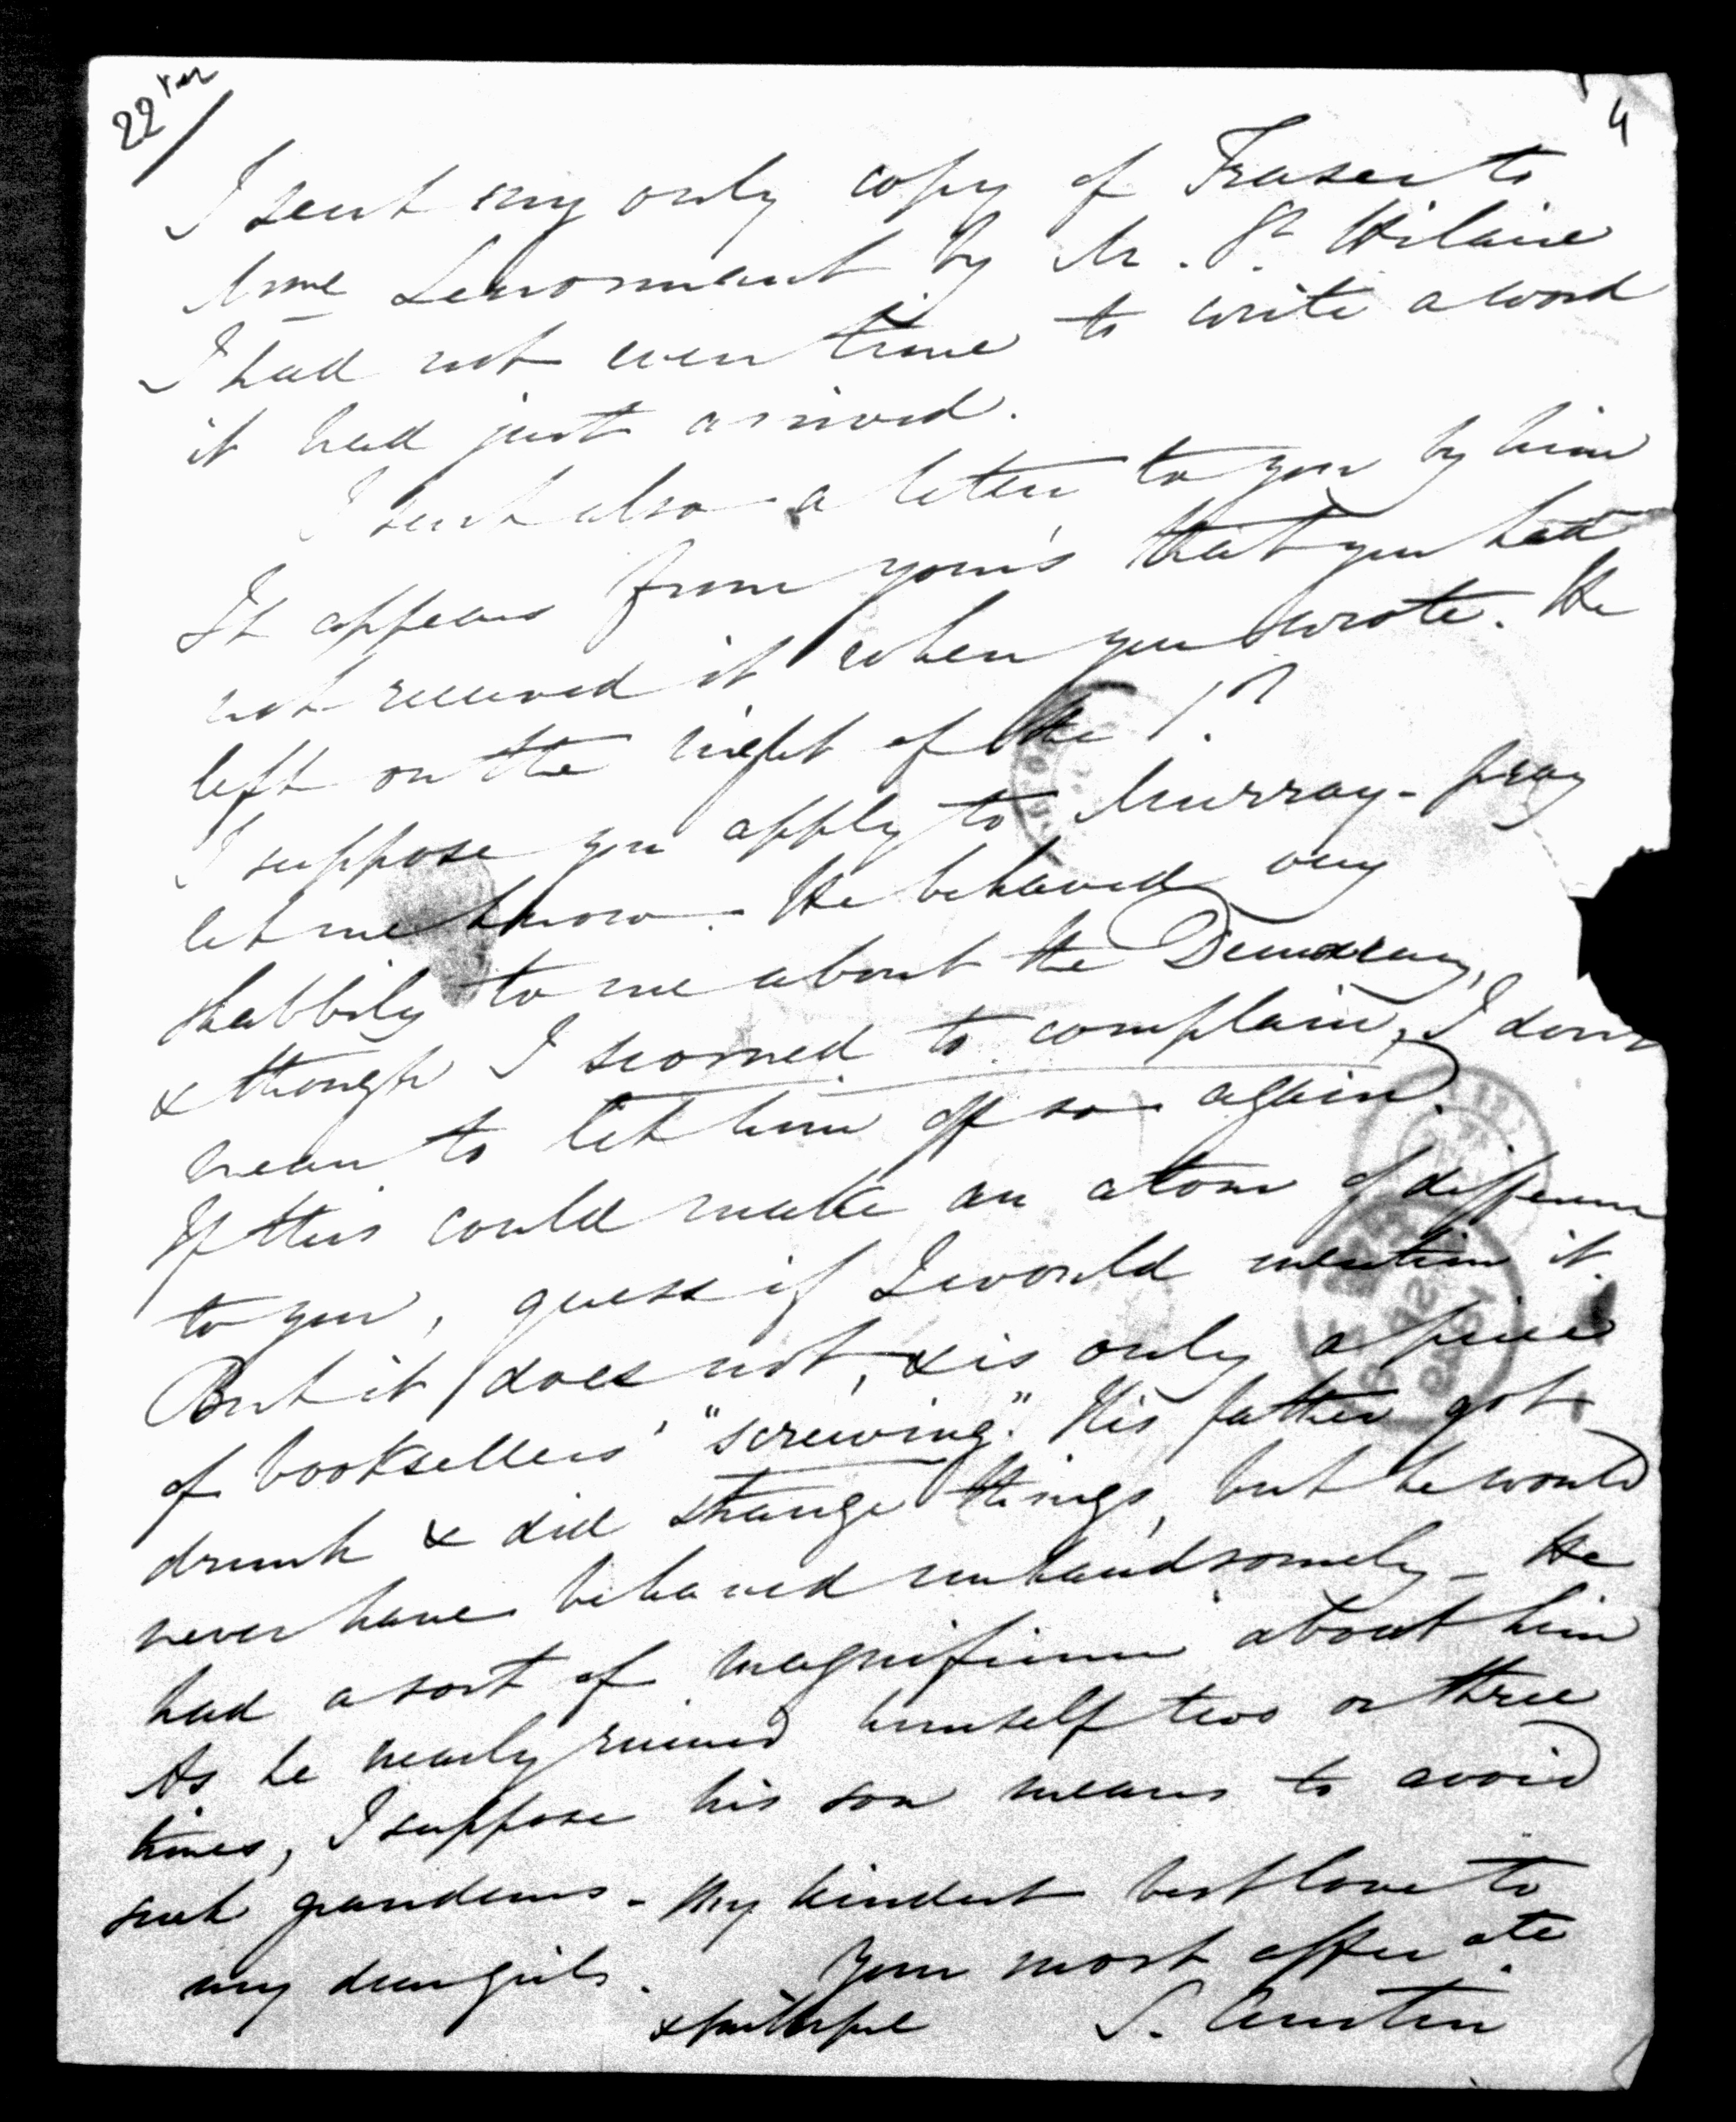 22 ter
4
I sent my only copy of Fraser to
Mme Lenormant by M. St. Hilaire
I had not even time to write a word
it had just arrived.
I sent also a letter to you by him
It appears from yours that you had
not received it when you wrote. He
left on the night of the 1st
I suppose you apply to Murray - pray
let me know. He behaved very
shabbily to me about the Democracy,
& though I scorned to complain, I don't
mean to let him off so again.
If this could make an atom of difference
to you, guess if I would mention it.
But it does not, & is only a piece
of booksellers' "screwing". His father got
drunk & did strange things, but he would
never have behaved unhandsomely - He
had a sort of magnificence about him
As he nearly ruined himself two or three
times, I suppose his son means to avoid
such grandeurs - My kindest best love to
my dear girls. Your most affec ate
& faithful S. Austin